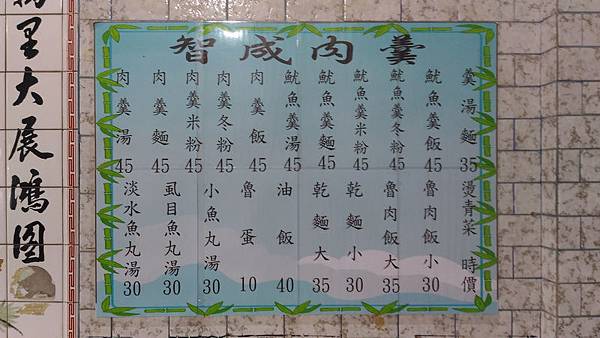 智成肉羹
羹湯麵 35
魷魚羹飯 45
魷魚羹冬粉 45
魷魚羹米粉 45
魷魚羹麵 45
魷魚羹湯 45
肉羹飯 45
肉羹冬粉 45
肉羹米粉 45
肉羹麵 45
肉羹湯 45
燙青菜 時價
魯肉飯小 30
魯肉飯大 35
乾麵小 30
乾麵大 35
油飯 40
魯蛋 10
小魚丸湯 30
虱目魚丸湯 30
淡水魚丸湯 30
里大展鴻图